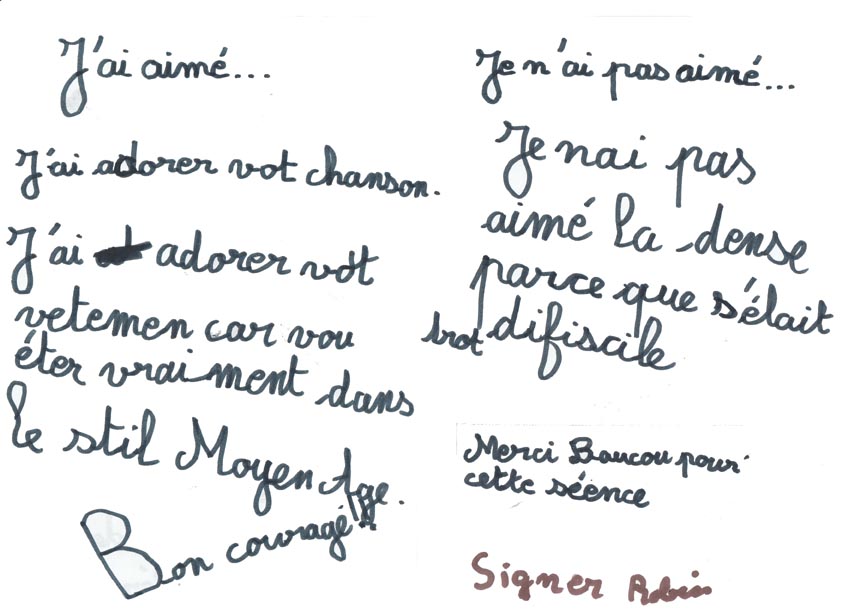 J'ai aimé...
J'ai adorer vot chanson.
J'ai adorer vot
vetemen car vou
éter vraiment dans
le stil Moyen Age.
Bon couragé !!
Je n'ai pas aimé...
Je nai pas
aimé la dense
parce que s'était
trot difiscile
Merci Baucou pour
cette séence
Signer Robin